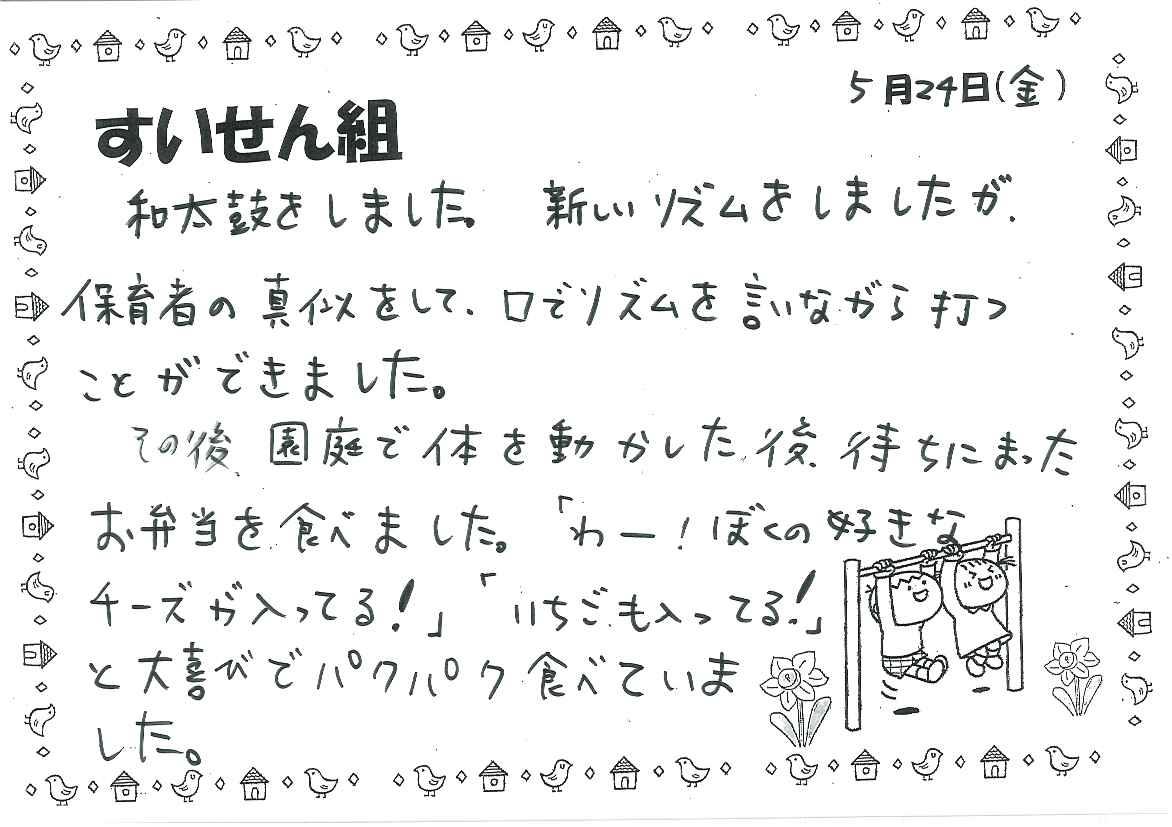 5月24日(金)
すいせん組
和太鼓をしました。 新しいリズムをしましたが、
保育者の真似をして、口でリズムを言いながら打つ
ことができました。
その後、園庭で体を動かした後、待ちにまった
お弁当を食べました。「わー!ぼくの好きな
チーズが入ってる!」「いちごも入ってる!」
と大喜びでパクパク食べていま
した。